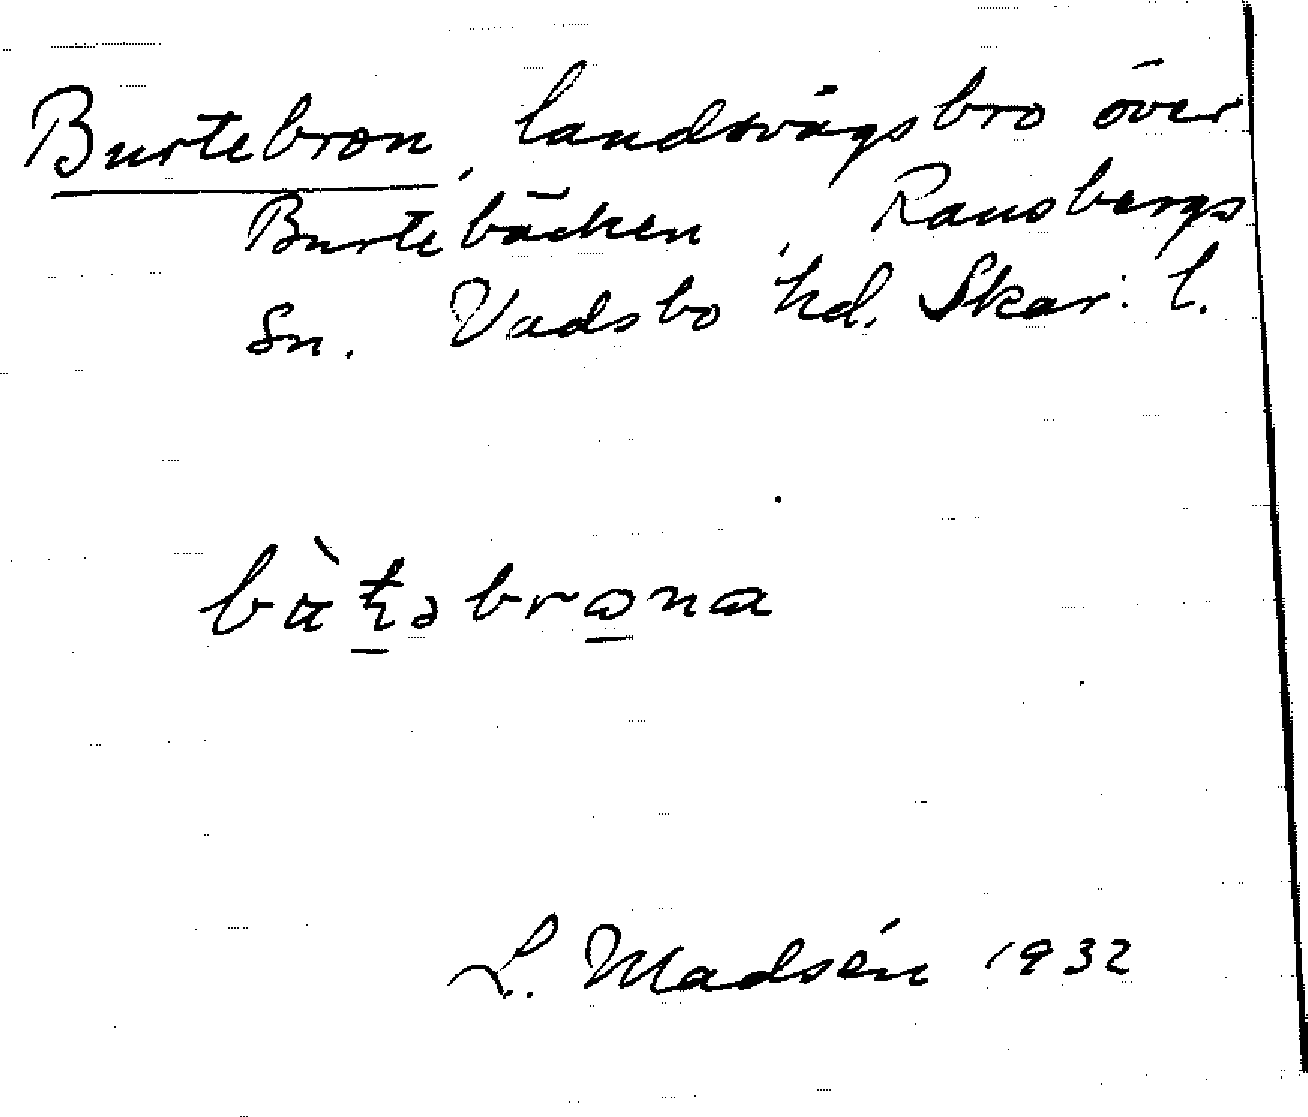 Burtebron, landsvägsbro över
Burtebäcken, Ransbergs
Sn. Vadsbo hd. Skar. l.
L. Madsén 1932